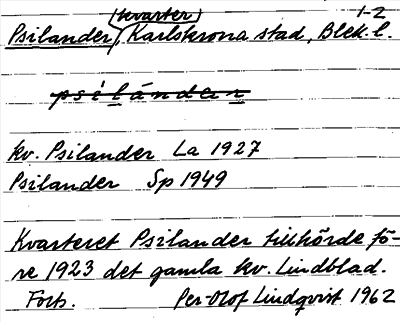 kvarter 1-2
Psilander, Karlskrona stad, Blek. l.
psilánder
kv. Psilander La 1927
Psilander Sp 1949
Kvarteret Psilander tillhörde fö-
re 1923 det gamla kv. Lindblad.
Forts. Per-Olof Lindqvist 1962